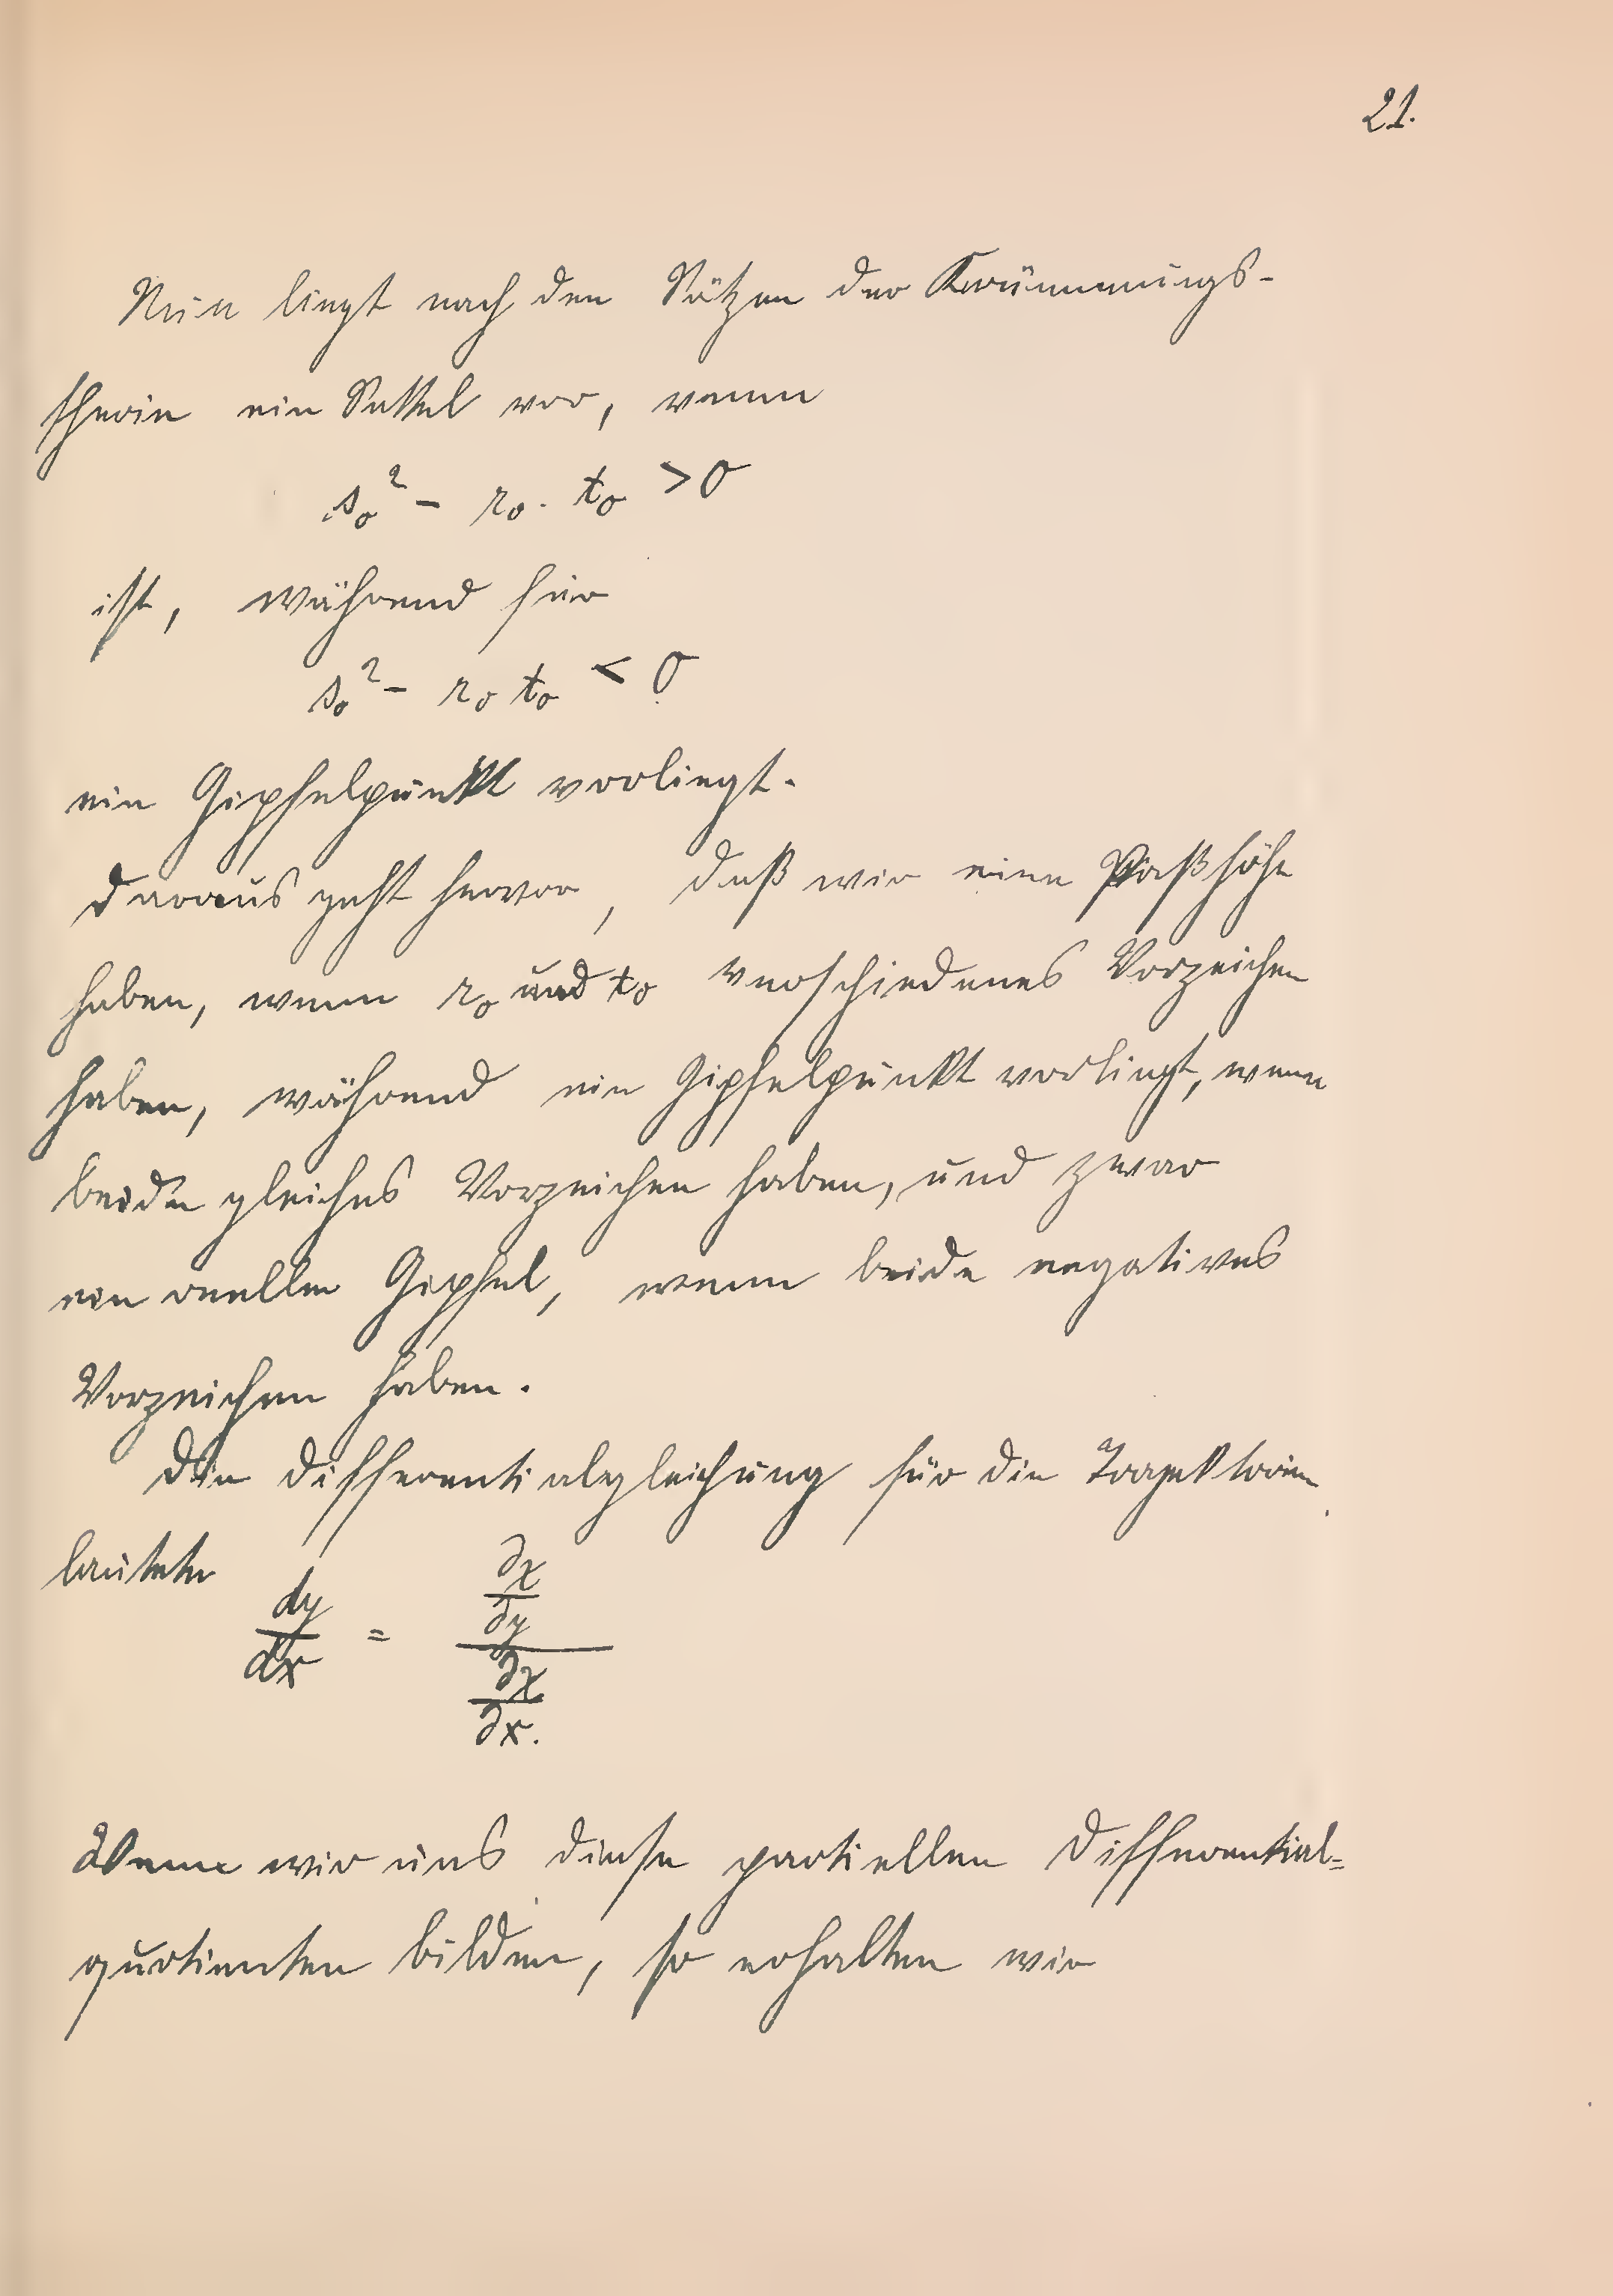 21.
Nun liegt nach den Sätzen der Krümmungs-
therie ein Sattel vor, wenn
s₀² - r₀ · t₀ > 0
ist, während für
s₀² - r₀ t₀ < 0
ein Gipfelpunkt vorliegt.
Daraus geht hervor, daß wir eine Paßhöhe
haben, wenn r₀ und t₀ verschiedenes Vorzeichen
haben, während ein Gipfelpunkt vorliegt, wenn
beide gleiches Vorzeichen haben, und zwar
ein reeller Gipfel, wenn beide negatives
Vorzeichen haben.
Die Differentialgleichung für die Trajektorien
lautete
dy/dx = (∂χ/∂y)/(∂χ/∂x).
Wenn wir uns diese partiellen Differential=
quotienten bilden, so erhalten wir